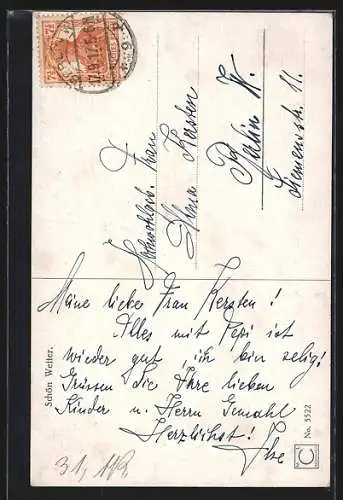 Meine liebe Frau Kersten!
Alles mit Pepi ist
wieder gut, ich bin selig!
Grüssen Sie Ihre lieben
Kinder u. Herrn Gemahl
Herzlichst! Ilse
Frau
Kersten
Berlin W.
11.
Schön Wetter.
No. 5522
C
31, 118,
7½